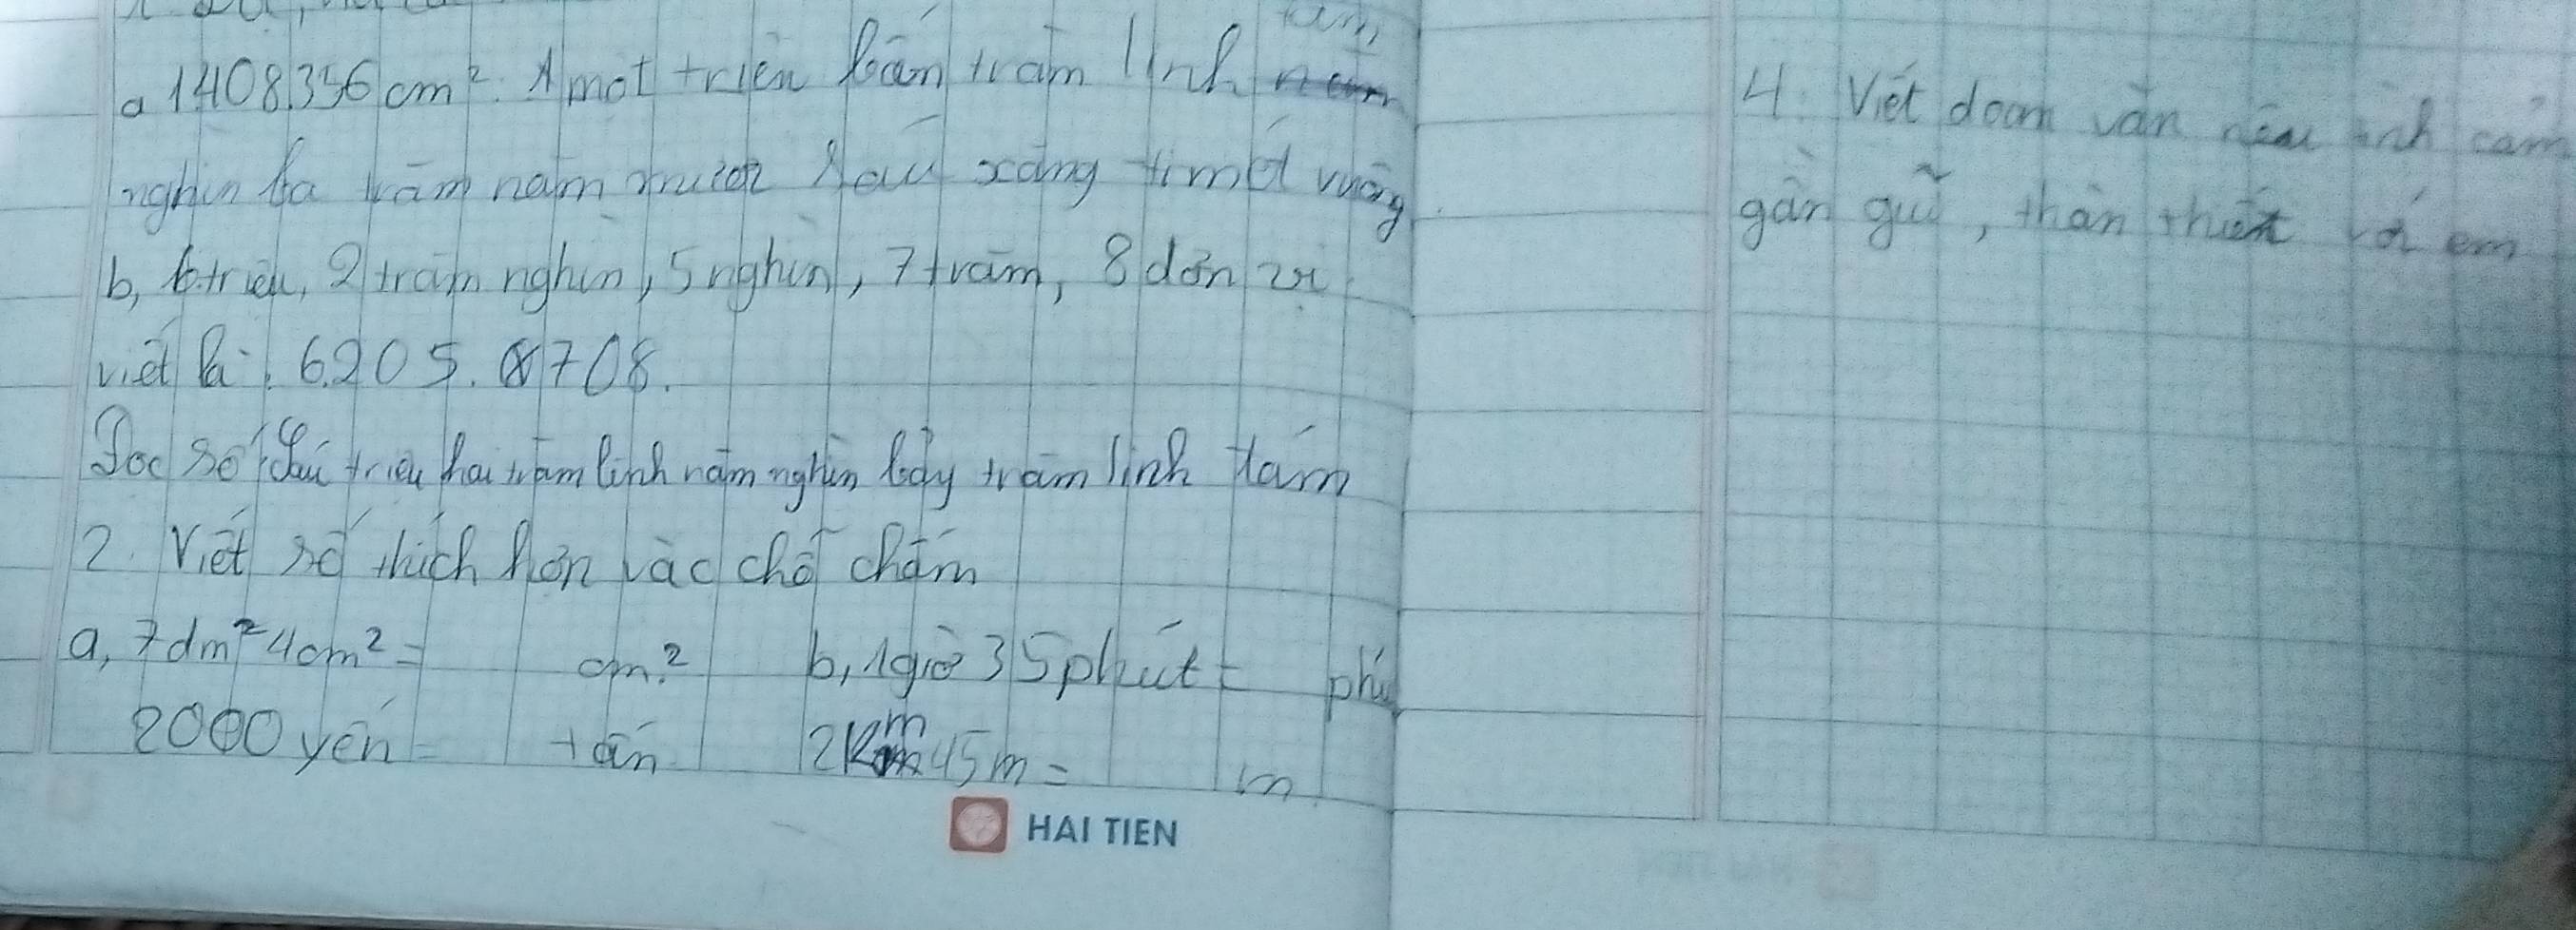 tám
a 1408.356 cm². một triệu bốn trăm linh
nghìn ba trăm năm mươi sáu xăng timét vuông
b, 6 triệu, 2 trăm nghìn, 5 nghìn, 7 trăm, 8 đơn vị
viết là: 6.205.708.
Đọc số: Sáu triệu hai trăm linh năm nghìn bảy trăm linh tám
2. Viết số thích hơn vào chỗ chấm
a, 7dm² 4cm² = cm² b, 1giờ 35phút = phú
2000 yến = tấn 2km 45m = m
HAI TIEN
4. Viết đoạn văn nêu tình cảm
gần gũi, thân thiết với em